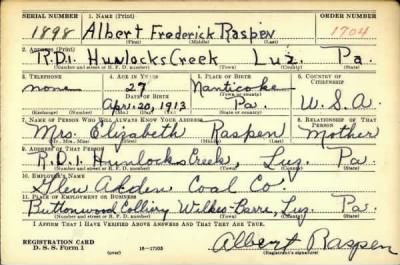 SERIAL NUMBER 1. NAME (Print) ORDER NUMBER
1898 Albert Frederick Raspen 1704
(First) (Middle) (Last)
2. ADDRESS (Print)
R.D.1. Hunlocks Creek Luz. Pa.
(Number and street or R. F. D. number) (Town) (County) (State)
3. TELEPHONE 4. AGE IN YEARS 5. PLACE OF BIRTH 6. COUNTRY OF CITIZENSHIP
none 27 Nanticoke
DATE OF BIRTH (Town or county)
Apr. 20, 1913 Pa. U.S.A.
(Exchange) (Number) (Mo.) (Day) (Yr.) (State or country)
7. NAME OF PERSON WHO WILL ALWAYS KNOW YOUR ADDRESS 8. RELATIONSHIP OF THAT PERSON
Mrs. Elizabeth Raspen Mother
(Mr., Mrs., Miss) (First) (Middle) (Last)
9. ADDRESS OF THAT PERSON
R.D.1. Hunlocks Creek, Luz. Pa.
(Number and street or R. F. D. number) (Town) (County) (State)
10. EMPLOYER'S NAME
Glen Alden Coal Co.
11. PLACE OF EMPLOYMENT OR BUSINESS
Buttonwood Colliery Wilkes-Barre, Luz. Pa.
(Number and street or R. F. D. number) (Town) (County) (State)
I AFFIRM THAT I HAVE VERIFIED ABOVE ANSWERS AND THAT THEY ARE TRUE.
REGISTRATION CARD
D. S. S. FORM 1
(over) 16-17105
Albert Raspen
(Registrant's signature)